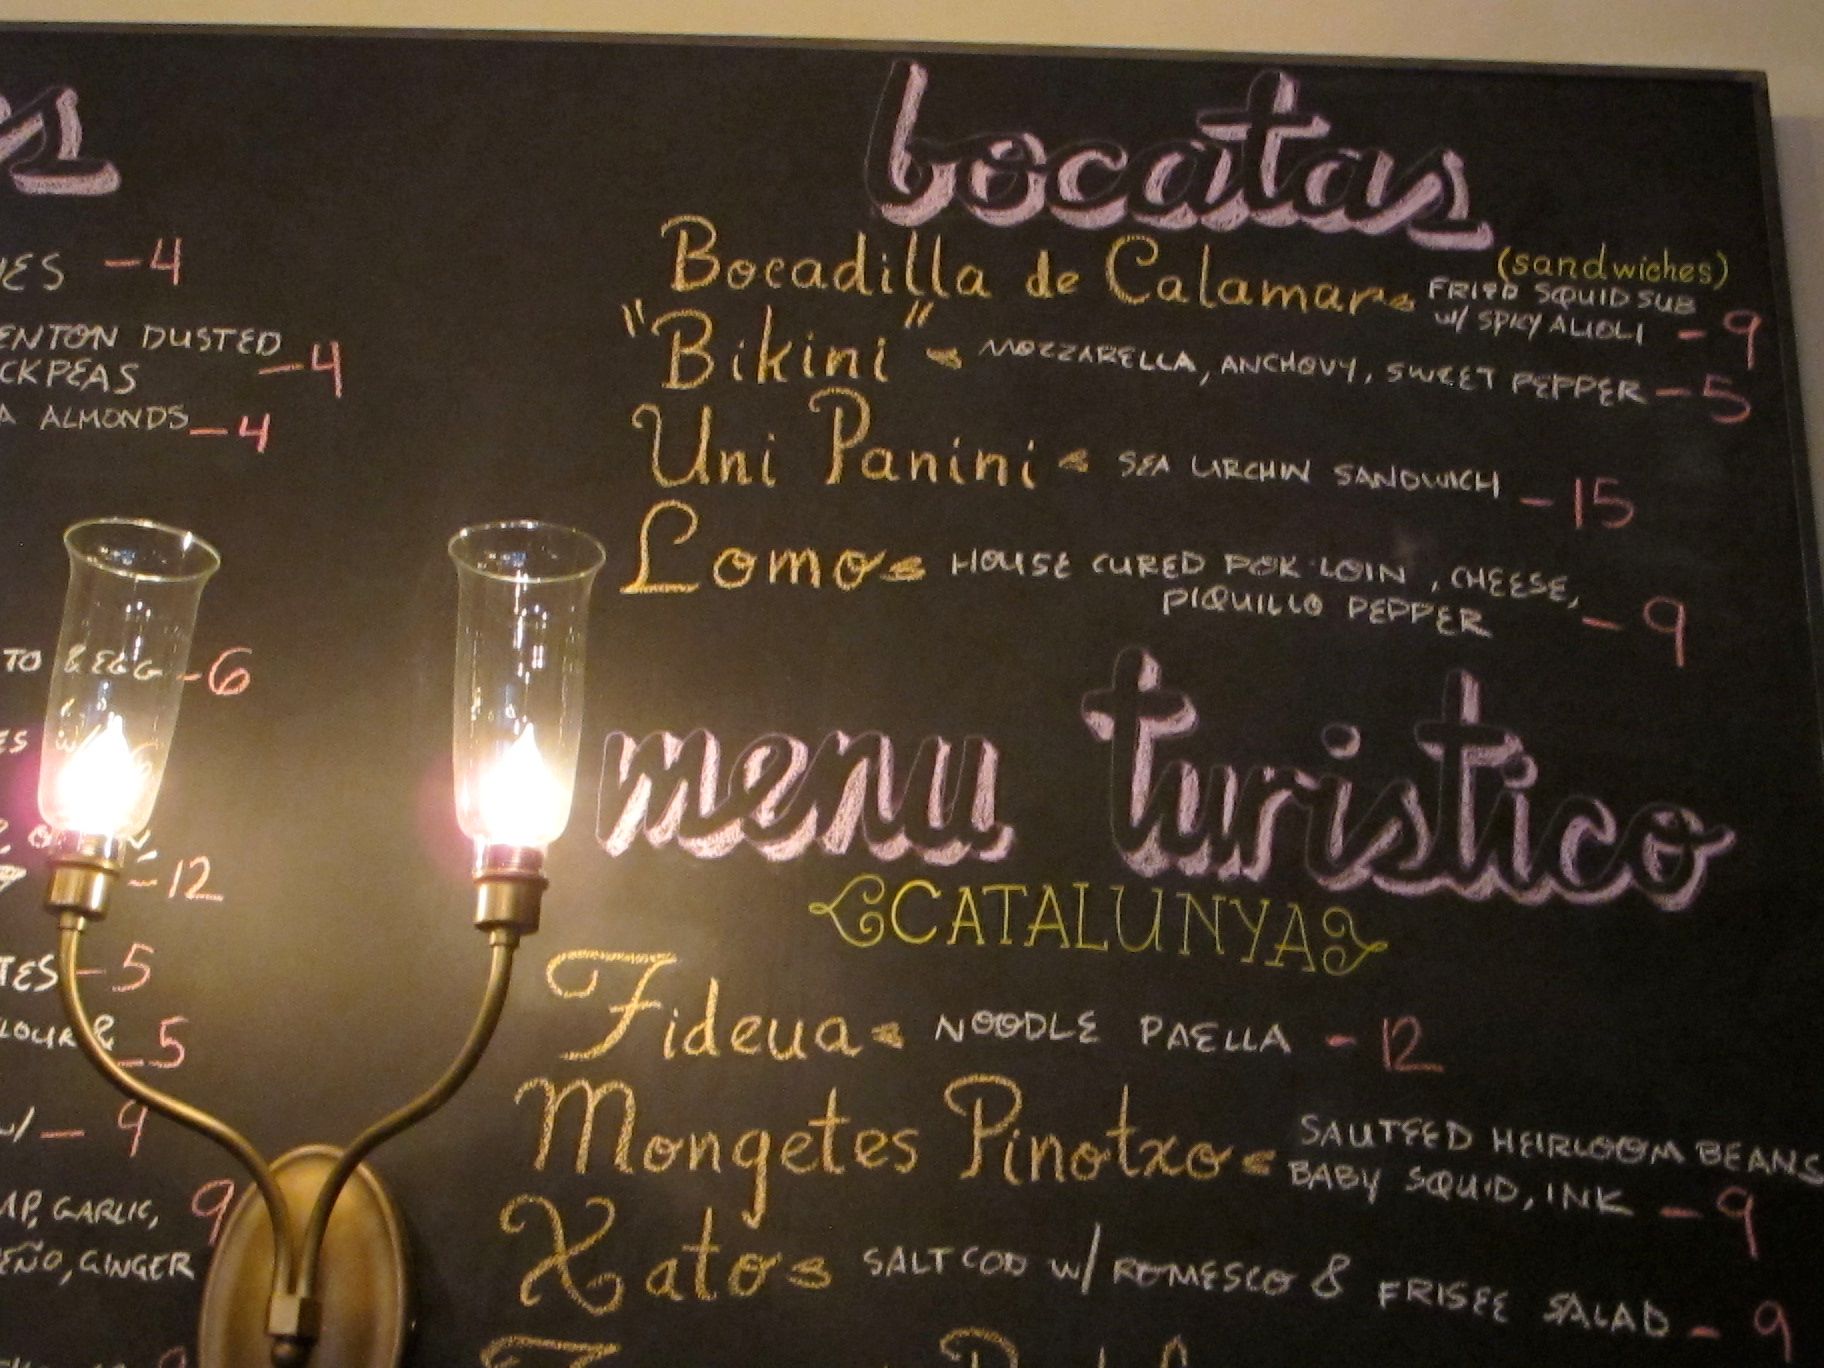 s
ES -4
ENTON DUSTED
CKPEAS -4
A ALMONDS -4
TO & EGG -6
ES W/
-12
TES -5
LOUR & -5
W/ - 9
MP, GARLIC, 9
EÑO, GINGER
bocatas
(sandwiches)
Bocadilla de Calamar FRIED SQUID SUB
W/ SPICY ALIOLI - 9
"Bikini" MOZZARELLA, ANCHOVY, SWEET PEPPER - 5
Uni Panini SEA URCHIN SANDWICH - 15
Lomo HOUSE CURED POK LOIN, CHEESE,
PIQUILLO PEPPER - 9
menu turistico
CATALUNYA
Fideua NOODLE PAELLA - 12
Mongetes Pinotxo SAUTEED HEIRLOOM BEANS
BABY SQUID, INK - 9
Xato SALT COD W/ ROMESCO & FRISEE SALAD - 9